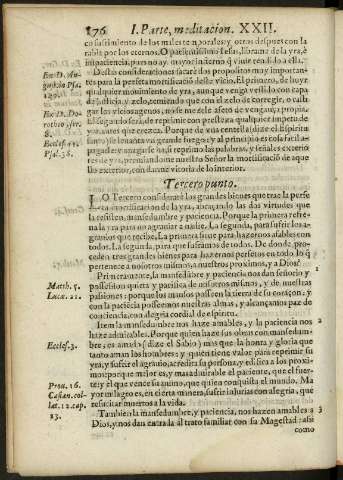 176 I. Parte, meditacion. XXII.
co sufrimiento de los males temporales y otros despues con la
rabia por los eternos. O pacientissimo Iesus, librame de la yra, è
impaciencia, pues no ay mayor infierno q̃ viuir rendido a ella.
Destas consideraciones sacarè dos propositos muy importan-
tes para la perfeta mortificacion deste vicio. El primero, de huyr
quanto pudiere de semejantes yras, aunque venga vestido con capa
de justicia, y zelo, temiendo que con el zelo de corregir, o casti-
gar los vicios agenos, no se mele assète de vengança, y propia
El segundo serà, de reprimir con presteza qualquier impetu de
yra, antes que crezca. Porque de vna centella (dize el Espiritu
santo) se leuanta vn grande fuego: y al principio es cosa facil a-
pagarle y ahogarle, reprimo las palabras, y señales exterio
res de yra, premiandome nuestro Señor la mortificacion de aque
llo exterior, con darme vitoria de lo interior.
Ex D. Au-
gustino Psa.
Ex D. Do-
rotheo ser.
8.
Eccles. 11.
Psal. 36.
Tercero punto.
LO Tercero considerarè los grandes bienes que trae la perfe
ta mortificacion de la yra, abraçando las dos virtudes que
la resisten, mansedumbre y paciencia. Porque la primera refre-
na la yra para no agrauiar a nadie. La segunda, para sufrir los a-
grauios que recibe. La primera sirue para hazernos afables con
todos. La segunda, para que suframos de todos. De donde pro-
ceden tres grandes bienes para hazernos perfetos en todo lo q̃
pertenece a nosotros mismos, a nuestros proximos, y a Dios.
Primeramente, la mansedumbre y paciencia nos dan señorio y 1
possession quieta y pacifica de nosotros mismos, y de nuestras
passiones: porque los mansos posseen la tierra de su coraçon, y
con la paciencia posseemos nuestras almas, y alcançamos paz de
conciencia, con alegria cordial de espiritu.
Matth. 5.
Lucæ. 21.
Item la mansedumbre nos haze amables, y la paciencia nos 2
haze admirables. Porque quien haze sus obras con mansedum-
bre, es amado (dize el Sabio) mas que la honra y gloria que
tanto aman los hombres: y quien tiene valor para reprimir su
yra, y sufrir el agrauio, acredita su persona, y edifica a los proxi-
mos: porque mejor es, y mas admirable el paciente, que el fuer-
te, y el que vence su animo, que quien conquista el mundo. Ma
yor milagro es, en cierta manera, sufrir injurias con alegria, que
resucitar muertos a la vida.
Eccles. 3.
Prou. 16.
Casian. col-
lat. 12. cap.
13.
Tambien la mansedumbre, y paciencia, nos hazen amables a 3
Dios, y nos dan entrada al trato familiar con su Magestad: assi
como